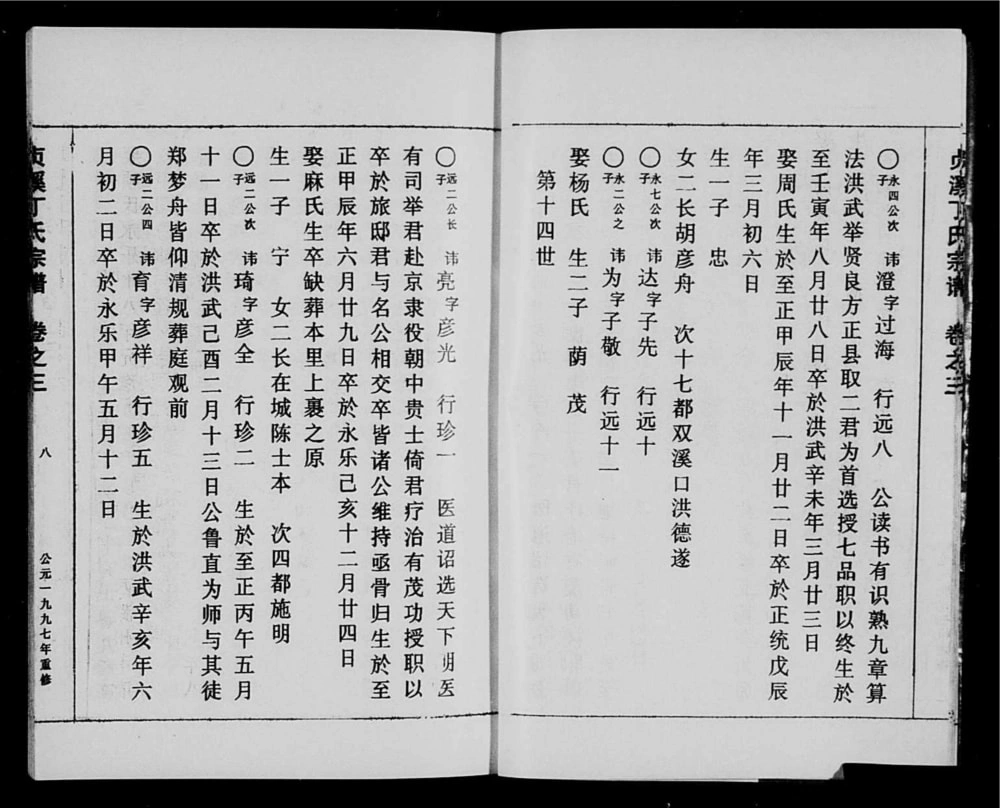 贞溪丁氏宗谱 卷之三
〇永四公次子 讳澄字过海 行远八 公读书有识熟九章算
法洪武举贤良方正县取二君为首选授七品职以终生於
至壬寅年八月廿八日卒於洪武辛未年三月廿三日
娶周氏生於至正甲辰年十一月廿二日卒於正统戊辰
年三月初六日
生一子 忠
女二长胡彦舟 次十七都双溪口洪德遂
〇永七公次子 讳达字子先 行远十
〇永二公之子 讳为字子敬 行远十一
娶杨氏 生二子 荫 茂
第十四世
〇远二公长子 讳亮字彦光 行珍一 医道诏选天下明医
有司举君赴京隶役朝中贵士倚君疗治有茂功授职以
卒於旅邸君与名公相交卒皆诸公维持亟骨归生於至
正甲辰年六月廿九日卒於永乐己亥十二月廿四日
娶麻氏生卒缺葬本里上裹之原
生一子 宁 女二长在城陈士本 次四都施明
〇远二公次子 讳琦字彦全 行珍二 生於至正丙午五月
十一日卒於洪武己酉二月十三日公鲁直为师与其徒
郑梦舟皆仰清规葬庭观前
〇远二公四子 讳育字彦祥 行珍五 生於洪武辛亥年六
月初二日卒於永乐甲午五月十二日
贞溪丁氏宗谱 卷之三 八 公元一九九七年重修